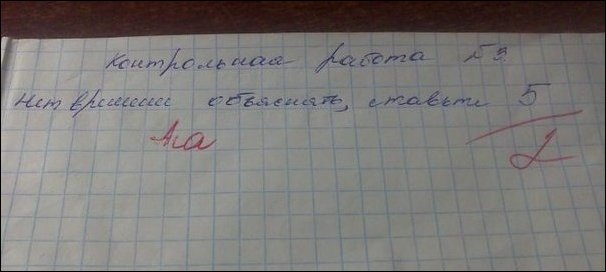 Контрольная работа №3.
Нет времени объяснять, ставьте 5
Ага 2